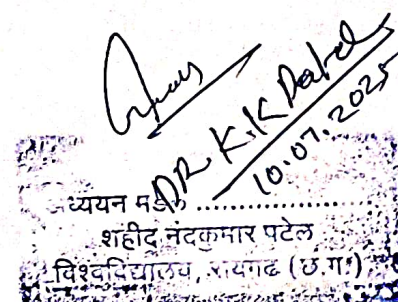 DR K.K Patel
10.07.2025
अध्ययन मंडल ..................
शहीद नंदकुमार पटेल
विश्वविद्यालय, रायगढ (छ.ग.)